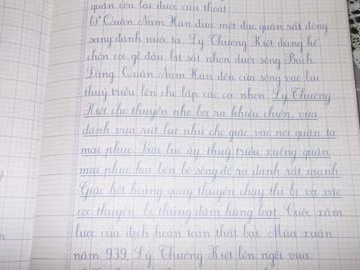 quân còn lại được cứu thoát
b) Quân Nam Hán đưa một đạo quân rất đông
sang đánh nước ta. Lý Thường Kiệt dùng kế
chôn cọc gỗ đầu bịt sắt nhọn dưới sông Bạch
Đằng. Quân Nam Hán đến cửa sông vào lúc
thuỷ triều lên che lấp các cọc nhọn. Lý Thường
Kiệt cho thuyền nhẹ bơi ra khiêu chiến, vừa
đánh vừa rút lui nhử cho giặc vào nơi quân ta
mai phục. Với lúc ấy thuỷ triều xuống quân
mai phục hai bên bờ sông đổ ra đánh rất mạnh
Giặc hốt hoảng quay thuyền chạy thì bị va vào
cọc thuyền bị thủng đắm hàng loạt. Cuộc xâm
lược của địch hoàn toàn thất bại. Mùa xuân
năm 939, Lý Thường Kiệt lên ngôi vua.